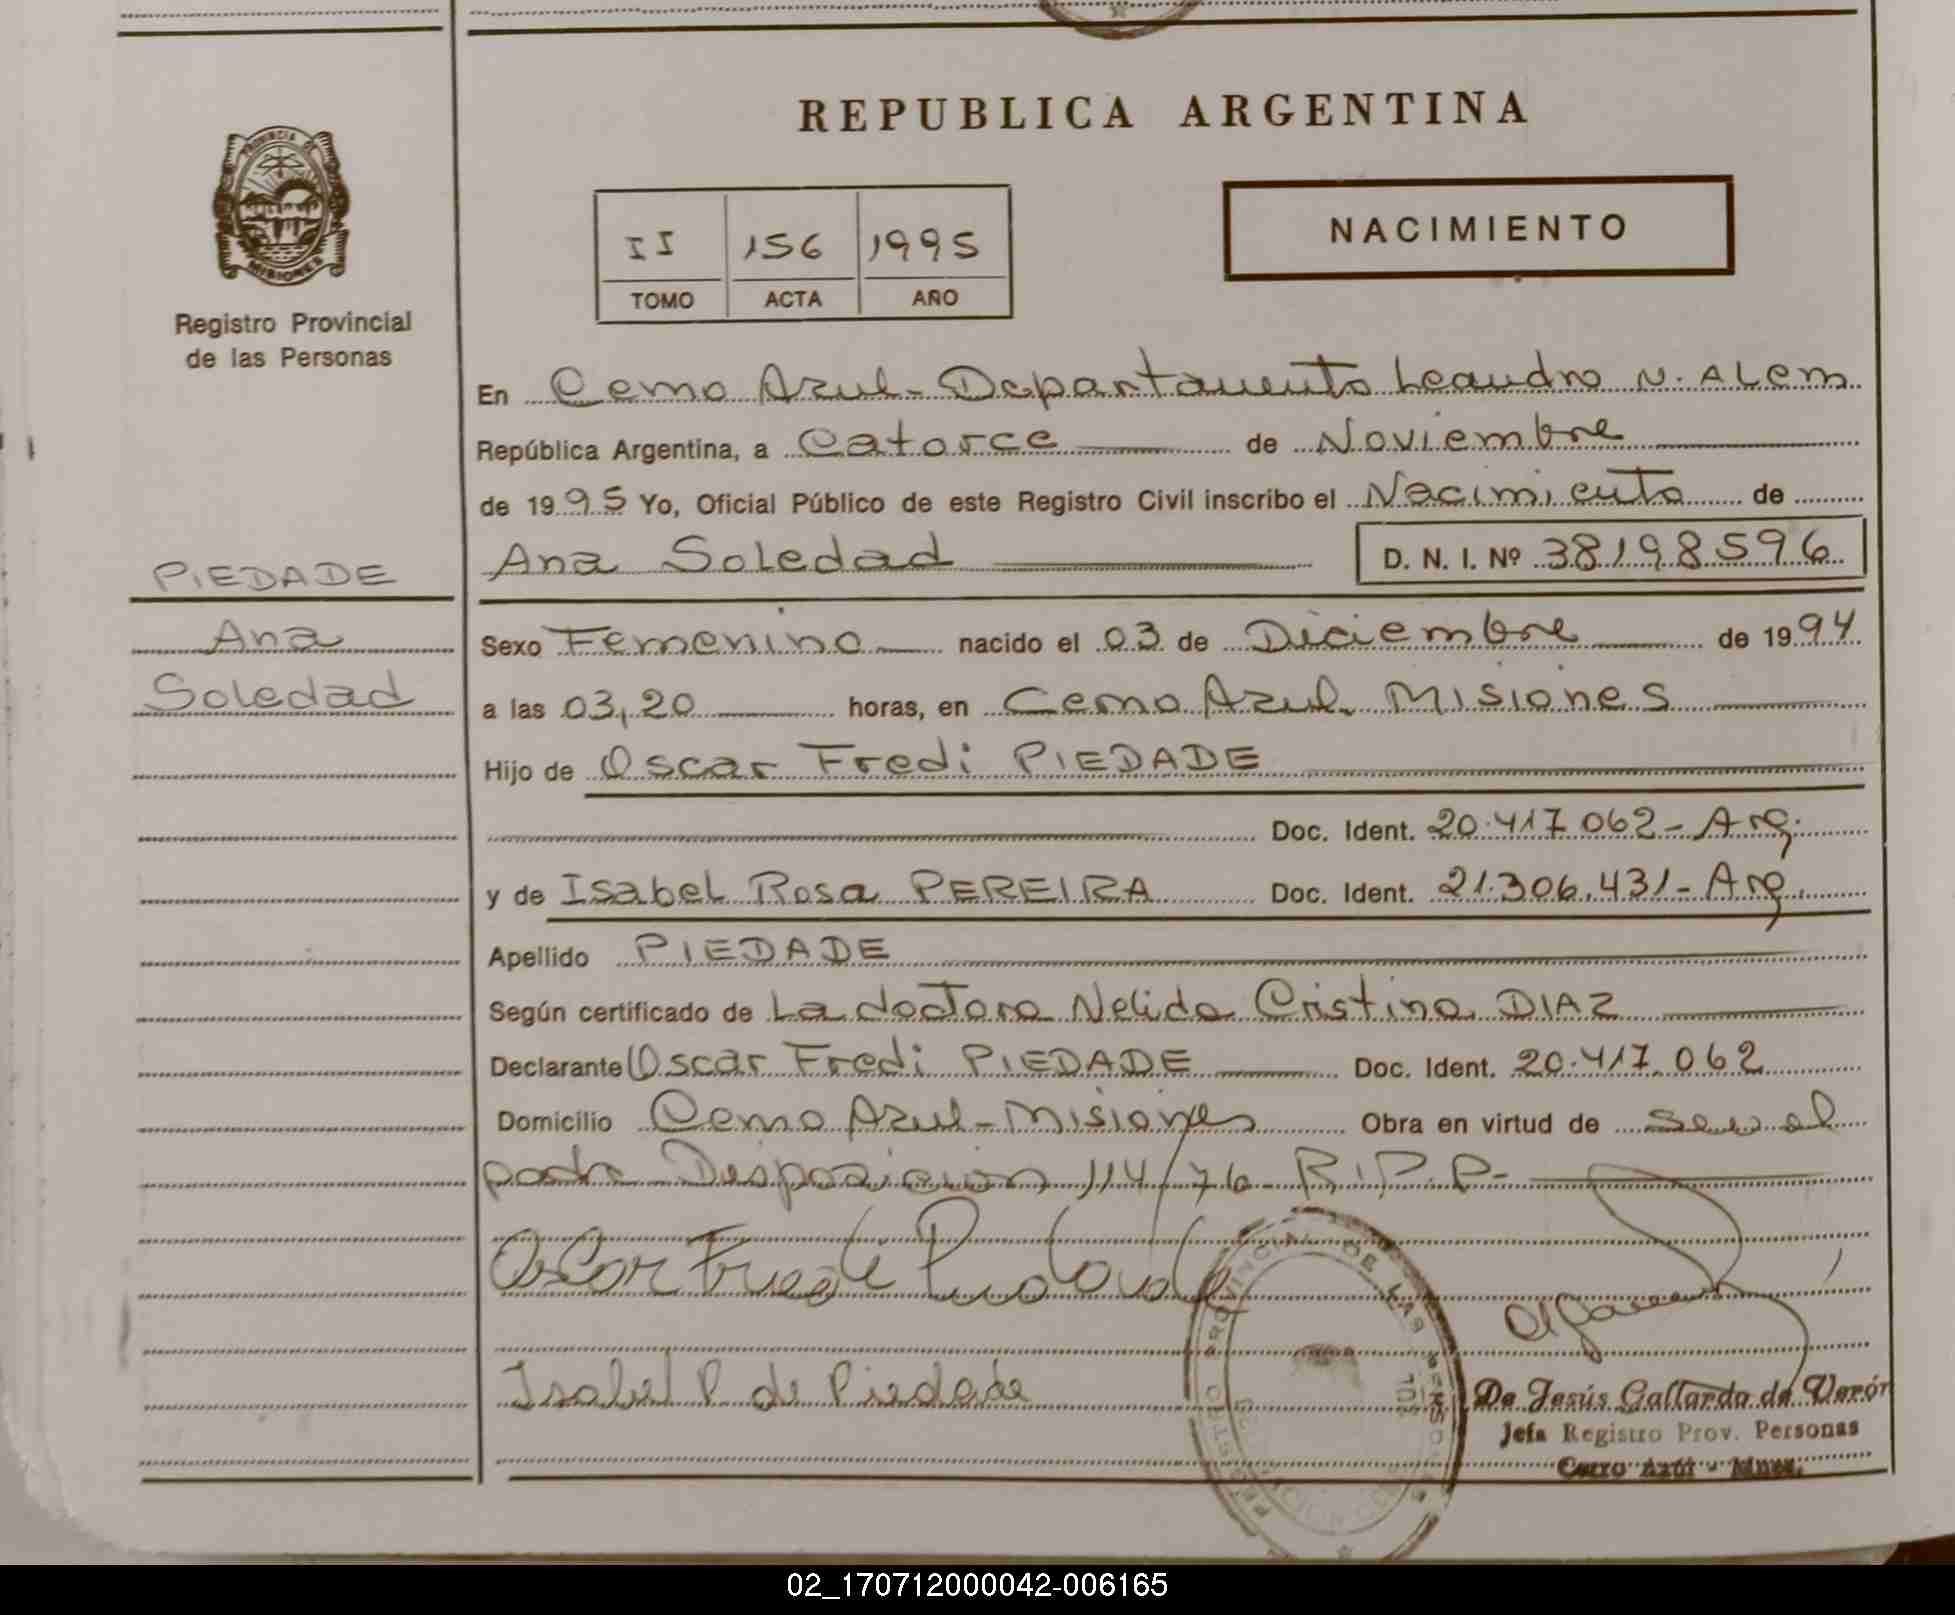 PROVINCIA DE
MISIONES
Registro Provincial
de las Personas
REPUBLICA ARGENTINA
II 156 1995
TOMO ACTA AÑO
NACIMIENTO
En Cerro Azul - Departamento Leandro N. Alem
República Argentina, a Catorce de Noviembre
de 1995 Yo, Oficial Público de este Registro Civil inscribo el Nacimiento de
Ana Soledad D. N. I. Nº 38198596
PIEDADE
Ana
Soledad
Sexo Femenino nacido el 03 de Diciembre de 1994
a las 03,20 horas, en Cerro Azul. Misiones
Hijo de Oscar Fredi PIEDADE
Doc. Ident. 20.417.062 - Arg.
y de Isabel Rosa PEREIRA Doc. Ident. 21.306.431 - Arg.
Apellido PIEDADE
Según certificado de La doctora Nelida Cristina DIAZ
Declarante Oscar Fredi PIEDADE Doc. Ident. 20.417.062
Domicilio Cerro Azul - Misiones Obra en virtud de ser el
padre Disposicion 114/76 R.P.P-
Oscar Fredi Piedade
Isabel P. de Piedade
De Jesús Gallardo de Verón
Jefa Registro Prov. Personas
Cerro Azul - Mnes.
02_170712000042-006165